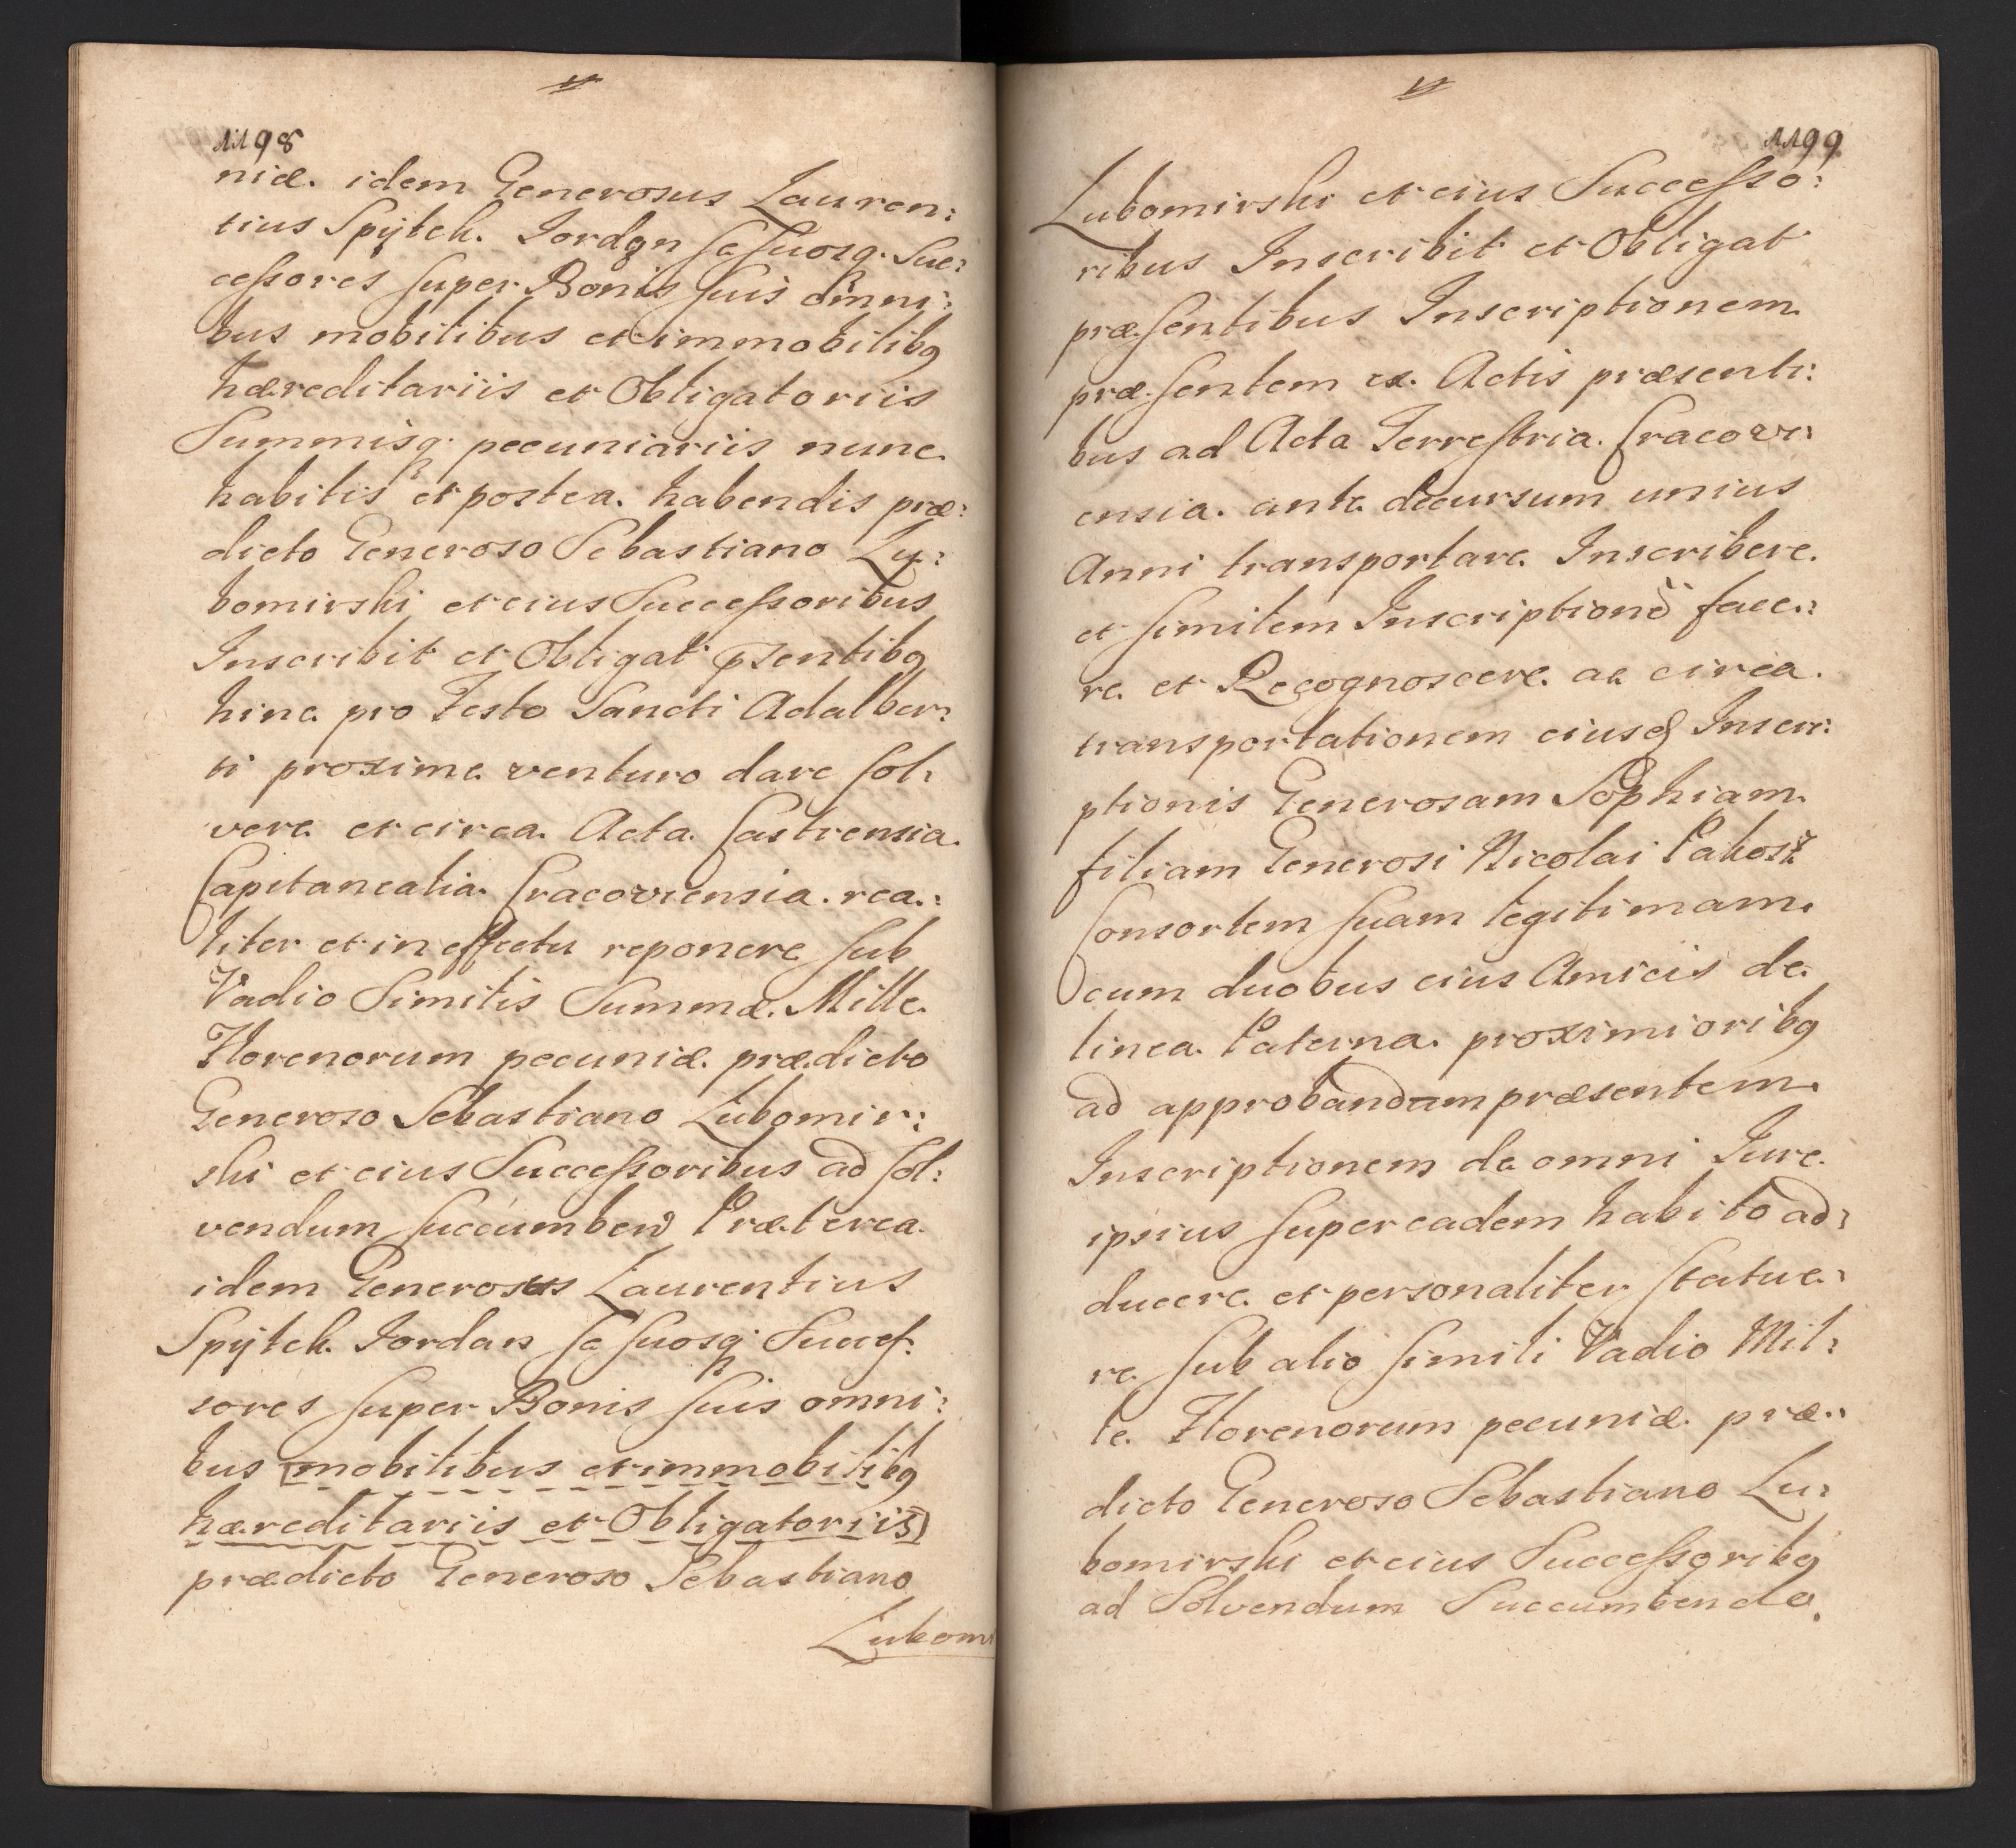 1198
niæ. idem Generosus Lauren:
tius Spÿtek Jordan se suosq. Suc:
cessores super Bonis suis omni:
bus mobilibus et immobilibq
hæreditariis et Obligatoriis
Summisq. pecuniariis nunc
habitis et postea. habendis præ:
dicto Generoso Sebastiano Lu:
bomirski et eius Successoribus
Inscribit et Obligat psentibq
hinc pro Festo Sancti Adalber:
ti proxime venturo dare sol:
vere et circa Acta Castrensia
Capitanealia Cracoviensia rea:
liter et in effectu reponere sub
Vadio Similis Summæ. Mille
Florenorum pecuniæ prædicto
Generoso Sebastiano Lubomir:
ski et eius Successoribus ad sol:
vendum succumben̄ Præterea
idem Generosus Laurentius
Spÿtek Jordan se suosq Succes:
sores super Bonis suis omni:
bus [mobilibus et immobilibq
hæreditariis et Obligatoriis]
prædicto Generoso Sebastiano
Lubomi
1199
Lubomirski et eius Successo:
ribus Inscribit et Obligat
præsentibus Inscriptionem
præsentem ex Actis præsenti:
bus ad Acta Terrestria Cracovi:
ensia ante decursum unius
Anni transportare Inscribere
et similem Inscriptionē face:
re et Recognoscere ac circa
transportationem eiusq Inscri:
ptionis Generosam Sophiam
filiam Generosi Nicolai Pakosz
Consortem suam legitimam
cum duobus eius Amicis de
linea Paterna proximioribq
ad approbandam præsentem
Inscriptionem de omni Jure
ipsius super eadem habito ad:
ducere et personaliter statue:
re sub alio simili Vadio Mil:
le Florenorum pecuniæ præ:
dicto Generoso Sebastiano Lu:
bomirski et eius Successoribq
ad Solvendum Succumbendo.